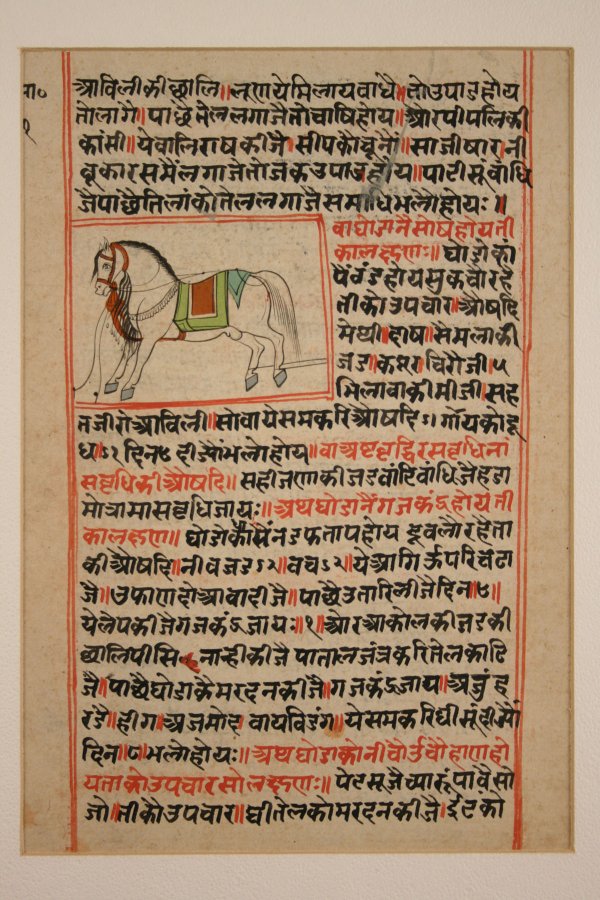 आविलीकीछालि॥लूणयेमिलायबांधै॥तोउपाडहोय
तोलागै॥पाछैमेललगाजैतोचाषिहोय॥औरपीपलिकी
कांसी॥येबालिराषकीजै॥सीपकौचूनौं॥साजीषारनी
बूकारसमैंलगाजेतोजकउपाडहोय॥पाटीसूंबांधि
जैपाछैतिलांकोतेललगाजैसमाधिभलौहोयः॥
वाघोडानैसोषहोयती
कालक्षणः॥घोडाकां
पेवंडहोयमुकवाररहे
तीकोउपचार॥औषदि
मेथी॥हाष॥सैमलाकी
जड॥कपूरचिरौंजी॥५
भिलावाकीमीजीसह
तजीरोआविली॥सोवायेसमकरिऔषदि ऽ१ गोयकोदू
धऽ१ दिन७ दीजौभलोहोय॥वाअष्टवृद्धिरसवृधिनां
सवृधिकीऔषदि॥सहीजणाकीजडवांटिबांधिजैहडा
मोत्रामासवृधिजायः॥अथघोडानैंगजकंडहोयती
कालक्षण॥घोडाकौसंनडफतापहोयडूबलौरहेता
कीऔषदि॥नीवजडऽ२॥वचऽ२॥येआगिऊपरिचढा
जै॥उफाणहोआवादीजै॥पाछैउतारिलीजैदिन॥७॥
येलेपकीजैगजकंडजायः॥१॥औरआकोलकीजडकी
छालिपीसिनान्हीकीजैपातालजंत्रकरितेलकाटि
जै॥पाछैघोडाकैमरदनकीजै॥गजकंडजाय॥अजुंह
रडै॥हीग॥अजमोदवायविडंग॥येसमकरिघीसूंदीजै
दिन॥७॥भलोहोयः॥अथघोडाकांनीचौउर्वौहाणहो
यताकोउपचारसोलक्षणः॥पेटमूजैच्यारूंपावैसो
जो॥तीकौउपचार॥घीतेलकोमरदनकीजै॥ईटको